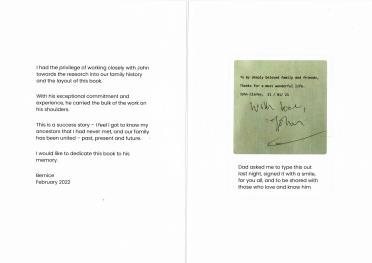 I had the privilege of working closely with John
towards the research into our family history
and the layout of this book.
With his exceptional commitment and
experience, he carried the bulk of the work on
his shoulders.
This is a success story – I feel I got to know my
ancestors that I had never met, and our family
has been united – past, present and future.
I would like to dedicate this book to his
memory.
Bernice
February 2022
To my deeply beloved family and friends,
Thanks for a most wonderful life.
John Clarke, 21 / 01/ 21
With love,
John
Dad asked me to type this out
last night, signed it with a smile,
for you all, and to be shared with
those who love and know him